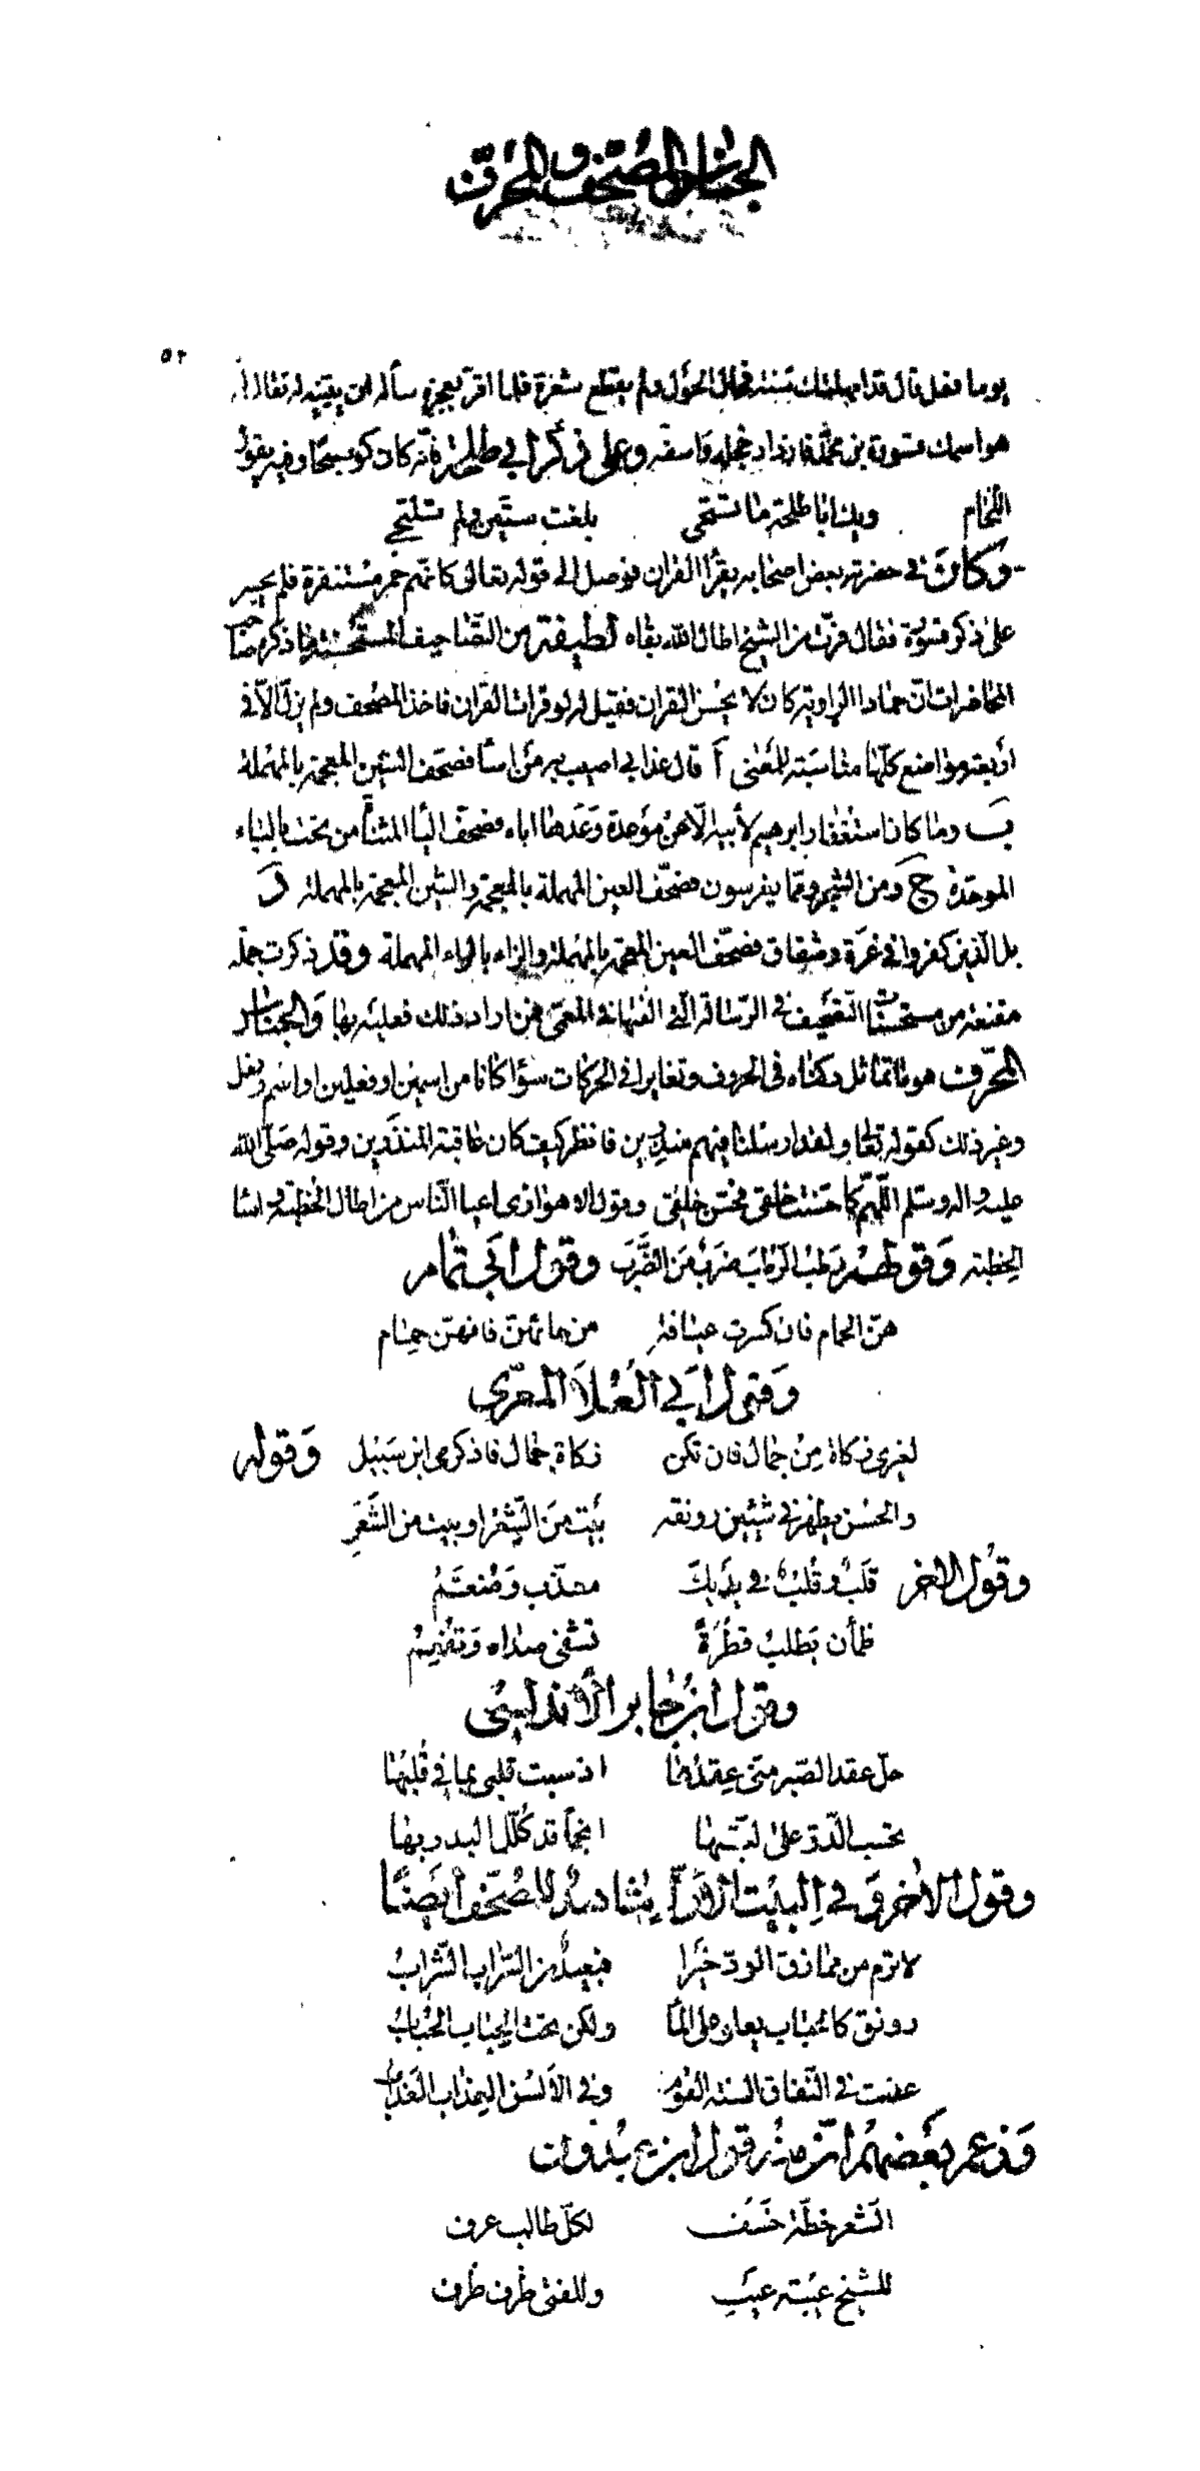 الجناس المصحف والمحرف
٥٢
يوما فعل قال قد امهلتك سنة فحال الحول ولم يقطع شعره فلما اقر بعجزه سأله ان يبينه له فقال
هو اسمك قسورة بن محمد فازداد خجله واسفه وعلى ذكر ابي طلحة فانه كان كوسجا وفيه يقول
اللحام ويلك ابا طلحة ما تستحى بلغت ستين ولم تلتحى
وكان في حضرته بعض اصحابه يقرأ القران فوصل الى قوله تعالى كانهم حمر مستنفرة فلم يجسر
على ذكر قسورة فقال فرت من الشيخ اطال الله بقاه لطيفة من التصاحيف المستحسنة ما ذكر صاحب
المحاضرات ان حمادا الراوية كان لا يحسن القران فقيل له لو قرات القران فاخذ المصحف ولم يزل الا في
أربعة مواضع كلها مناسبة للمعنى أ قال عذابي اصيب به من اسأ فصحف الشين المعجمة بالمهملة
ب وما كان استغفار ابرهيم لأبيه الا عن موعدة وعدها اباه فصحف اليا المثناة من تحت بالباء
الموحدة ج ومن الشجر ومما يغرسون فصحف العين المهملة بالمعجمة والشين المعجمة بالمهملة د
بل الذين كفروا في غرة وشقاق فصحف العين المعجمة بالمهملة والزاء بالراء المهملة وقد ذكرت جملة
مقنعة من مستحسنات التصحيف في الرسالة التي الفتها في المعمى فمن اراد ذلك فعليه بها والجناس
المحرف هو ما تماثل ركناه في الحروف وتغايرا في الحركات سوأ كانا من اسمين او فعلين او اسم وفعل
وغير ذلك كقوله تعالى ولقد ارسلنا فيهم منذرين فانظر كيف كان عاقبة المنذرين وقوله صلى الله
عليه واله وسلم اللهم كما حسنت خلقى فحسن خلقى وقول الاهوازى اعيا الناس من اطال الخطبة واسا
الخطبة وقولهم رطب الرطاب ضرب من الضرب وقول ابى تمام
هن الحمام فان كسرت عيافة من حائهن فانهن حمام
وقول أبي العلا المعرى
لغيرى زكاة من جمال فان تكن زكاة جمال فاذكرى ابن سبيل وقوله
والحسن يظهر في شيئين رونقه بيت من الشعر او بيت من الشعر
وقول الاخر قلب وقلب في يديك معذب ومنعم
ظمأن يطلب قطرة تشفى صداه وتفهم
وقول ابن جابر الأندلسى
حل عقد الصبر منى عقدها اذ سبت قلبى بما في قلبها
تحسب الدر على لبتها انجما قد كلل البدر بها
وقول الأخر وفى البيت الأول شاهد للمصحف أيضا
لا ترم من مماذق الود خيرا فبعيد من السراب الشراب
رونق كالحباب يعلو على المأ ولكن تحت الحباب الحباب
عذبت في النفاق السنة القوم وفي الألسن العذاب العذاب
وزعم بعضهم ان منه قول ابن عبدون
الشعر خطة خسف لكل طالب عرف
للشيخ عيبة عيب وللفتى ظرف ظرف